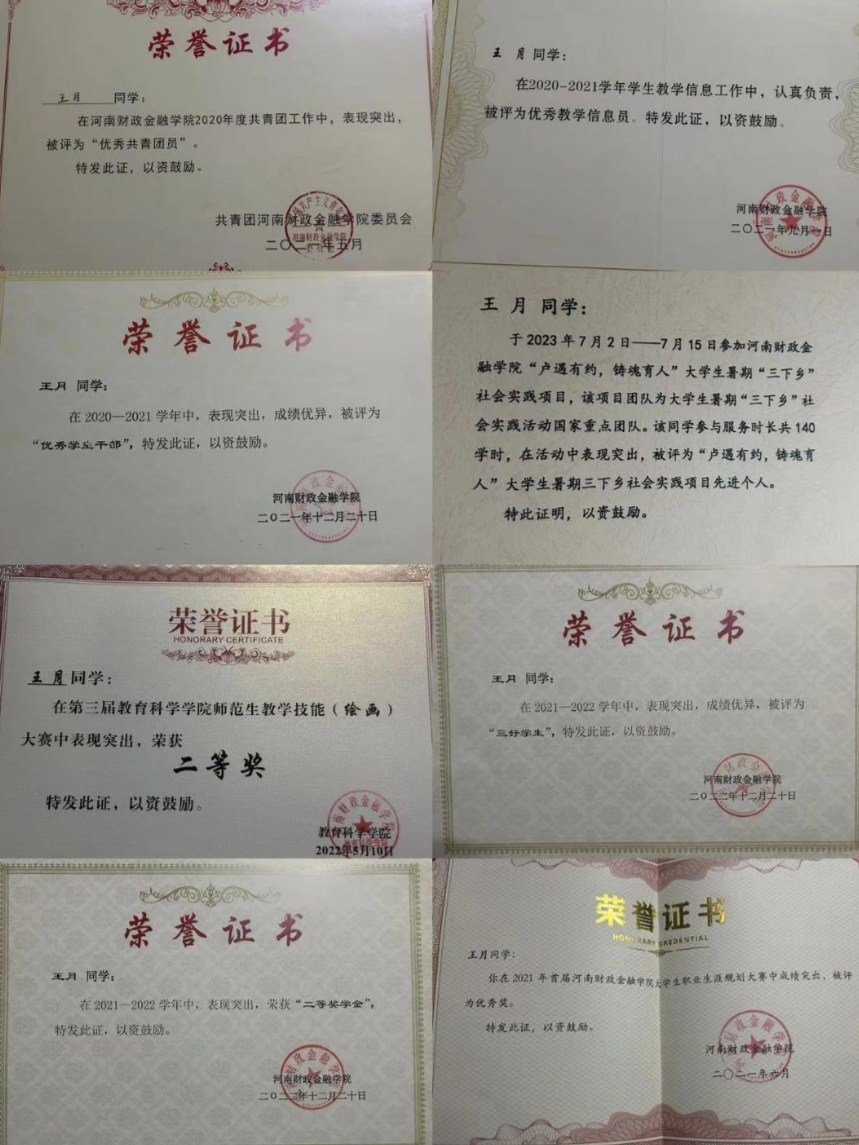 荣誉证书
王月 同学：
在河南财政金融学院2020年度共青团工作中，表现突出，
被评为“优秀共青团员”。
特发此证，以资鼓励。
共青团河南财政金融学院委员会
二〇二一年五月
王 月 同学：
在2020-2021学年学生教学信息工作中，认真负责，
被评为优秀教学信息员。特发此证，以资鼓励。
河南财政金融学院
二〇二一年九月一日
荣誉证书
王月 同学：
在 2020—2021 学年中，表现突出，成绩优异，被评为
“优秀学生干部”，特发此证，以资鼓励。
河南财政金融学院
二〇二一年十二月二十日
王 月 同学：
于 2023 年 7 月 2 日——7 月 15 日参加河南财政金
融学院“卢遇有约，铸魂育人”大学生暑期“三下乡”
社会实践项目，该项目团队为大学生暑期“三下乡”社
会实践活动国家重点团队。该同学参与服务时长共 140
学时，在活动中表现突出，被评为“卢遇有约，铸魂育
人”大学生暑期三下乡社会实践项目先进个人。
特此证明，以资鼓励。
荣誉证书
HONORARY CERTIFICATE
王 月 同学：
在第三届教育科学学院师范生教学技能（绘画）
大赛中表现突出，荣获
二等奖
特发此证，以资鼓励。
教育科学学院
2022年5月10日
荣誉证书
王月 同学：
在 2021—2022 学年中，表现突出，成绩优异，被评为
“三好学生”，特发此证，以资鼓励。
河南财政金融学院
二〇二二年十二月二十日
荣誉证书
王月 同学：
在 2021—2022 学年中，表现突出，荣获“二等奖学金”，
特发此证，以资鼓励。
河南财政金融学院
二〇二二年十二月二十日
荣誉证书
HONORARY CREDENTIAL
王月同学：
你在 2021 年首届河南财政金融学院大学生职业生涯规划大赛中成绩突出，被评
为优秀奖。
特发此证，以资鼓励。
河南财政金融学院
二〇二一年六月